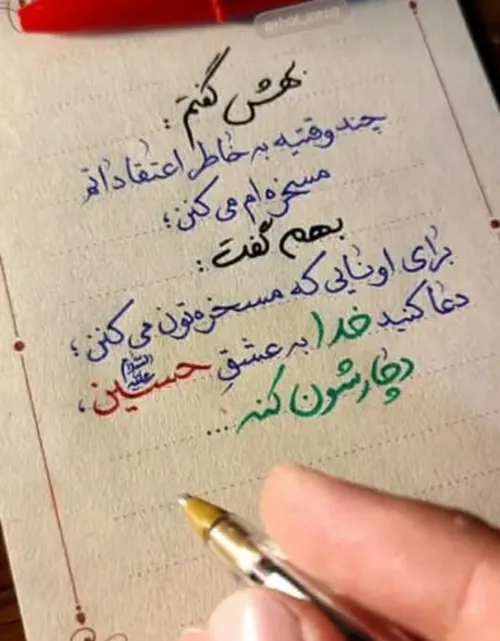 بهش گفتم :
چند وقتیه به خاطر اعتقاداتم
مسخره ام می کنن؛
بهم گفت :
برای اونایی که مسخره تون می کنن؛
دعا کنید خدا به عشقِ حسین علیه السلام،
دچارشون کنه ...